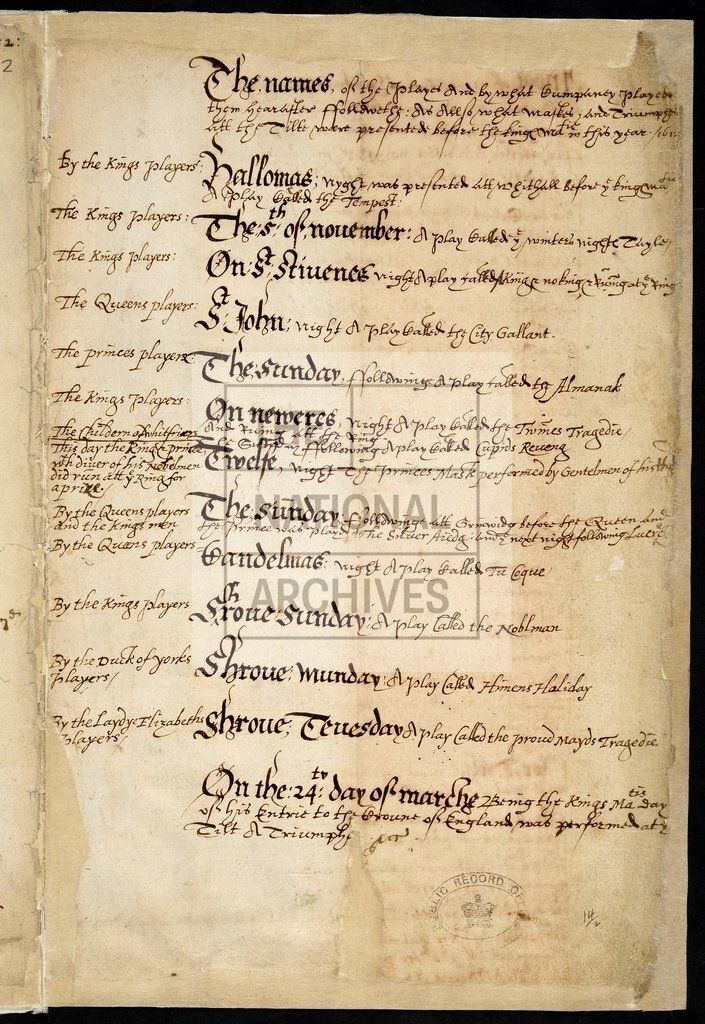 12:
2
The names, of the Playes And by what Cumpaney Played
them hearafter ffollowethe: As Allso what Maskes, and Triumphes
att the Tilte were presented before the king Ma:tie in this year 1612
By the Kings players: Hallomas: nyght was presented att whithall before ye king Ma:tie
A play Called the Tempest:
The Kings players: The 5th of november: A play Called ye winters nighte Tayle
The Kings players: On St Stiuenes night A play called A King & no king & Runing at ye Ring
The Queens players: St John: night A play Called the City Gallant.
The princes players The Sunday, ffollowinge A play called the Almanak
The Kings players: On neweres, night A play Called the Twines Tragedie
And Runing att the Ring
The Childern of whitfriars The Sunday following A play Called Cupids Reueng
This day the King & prince
wth diuer of his Noblmen
did run att ye Ring for
a prize
Twelfe, night The princes Mask performed by Gentelmen of his
By the Queens players
and the Kings men The Sunday: ffollowinge att Grinwidg before the Queen and
the Prince was playd the Siluer Aiedg: and ye next night following Lucre
By the Quens players Candelmas: night A play Called Tu Coque
By the Kings players Shroue: Sunday: A play Called the Noblman
By the Duck of Yorks
players Shroue: Munday: A play Called Himens Haliday
By the Laydy: Elizabeths
players Shroue, Teuesday A play Called the proud Mayds Tragedie
On the: 24: day of marche Being the Kings Ma:tis day
of his Entrie to the Croune of England was performed at ye
Tilt A Triumphe
THE NATIONAL ARCHIVES
PUBLIC RECORD OFFICE